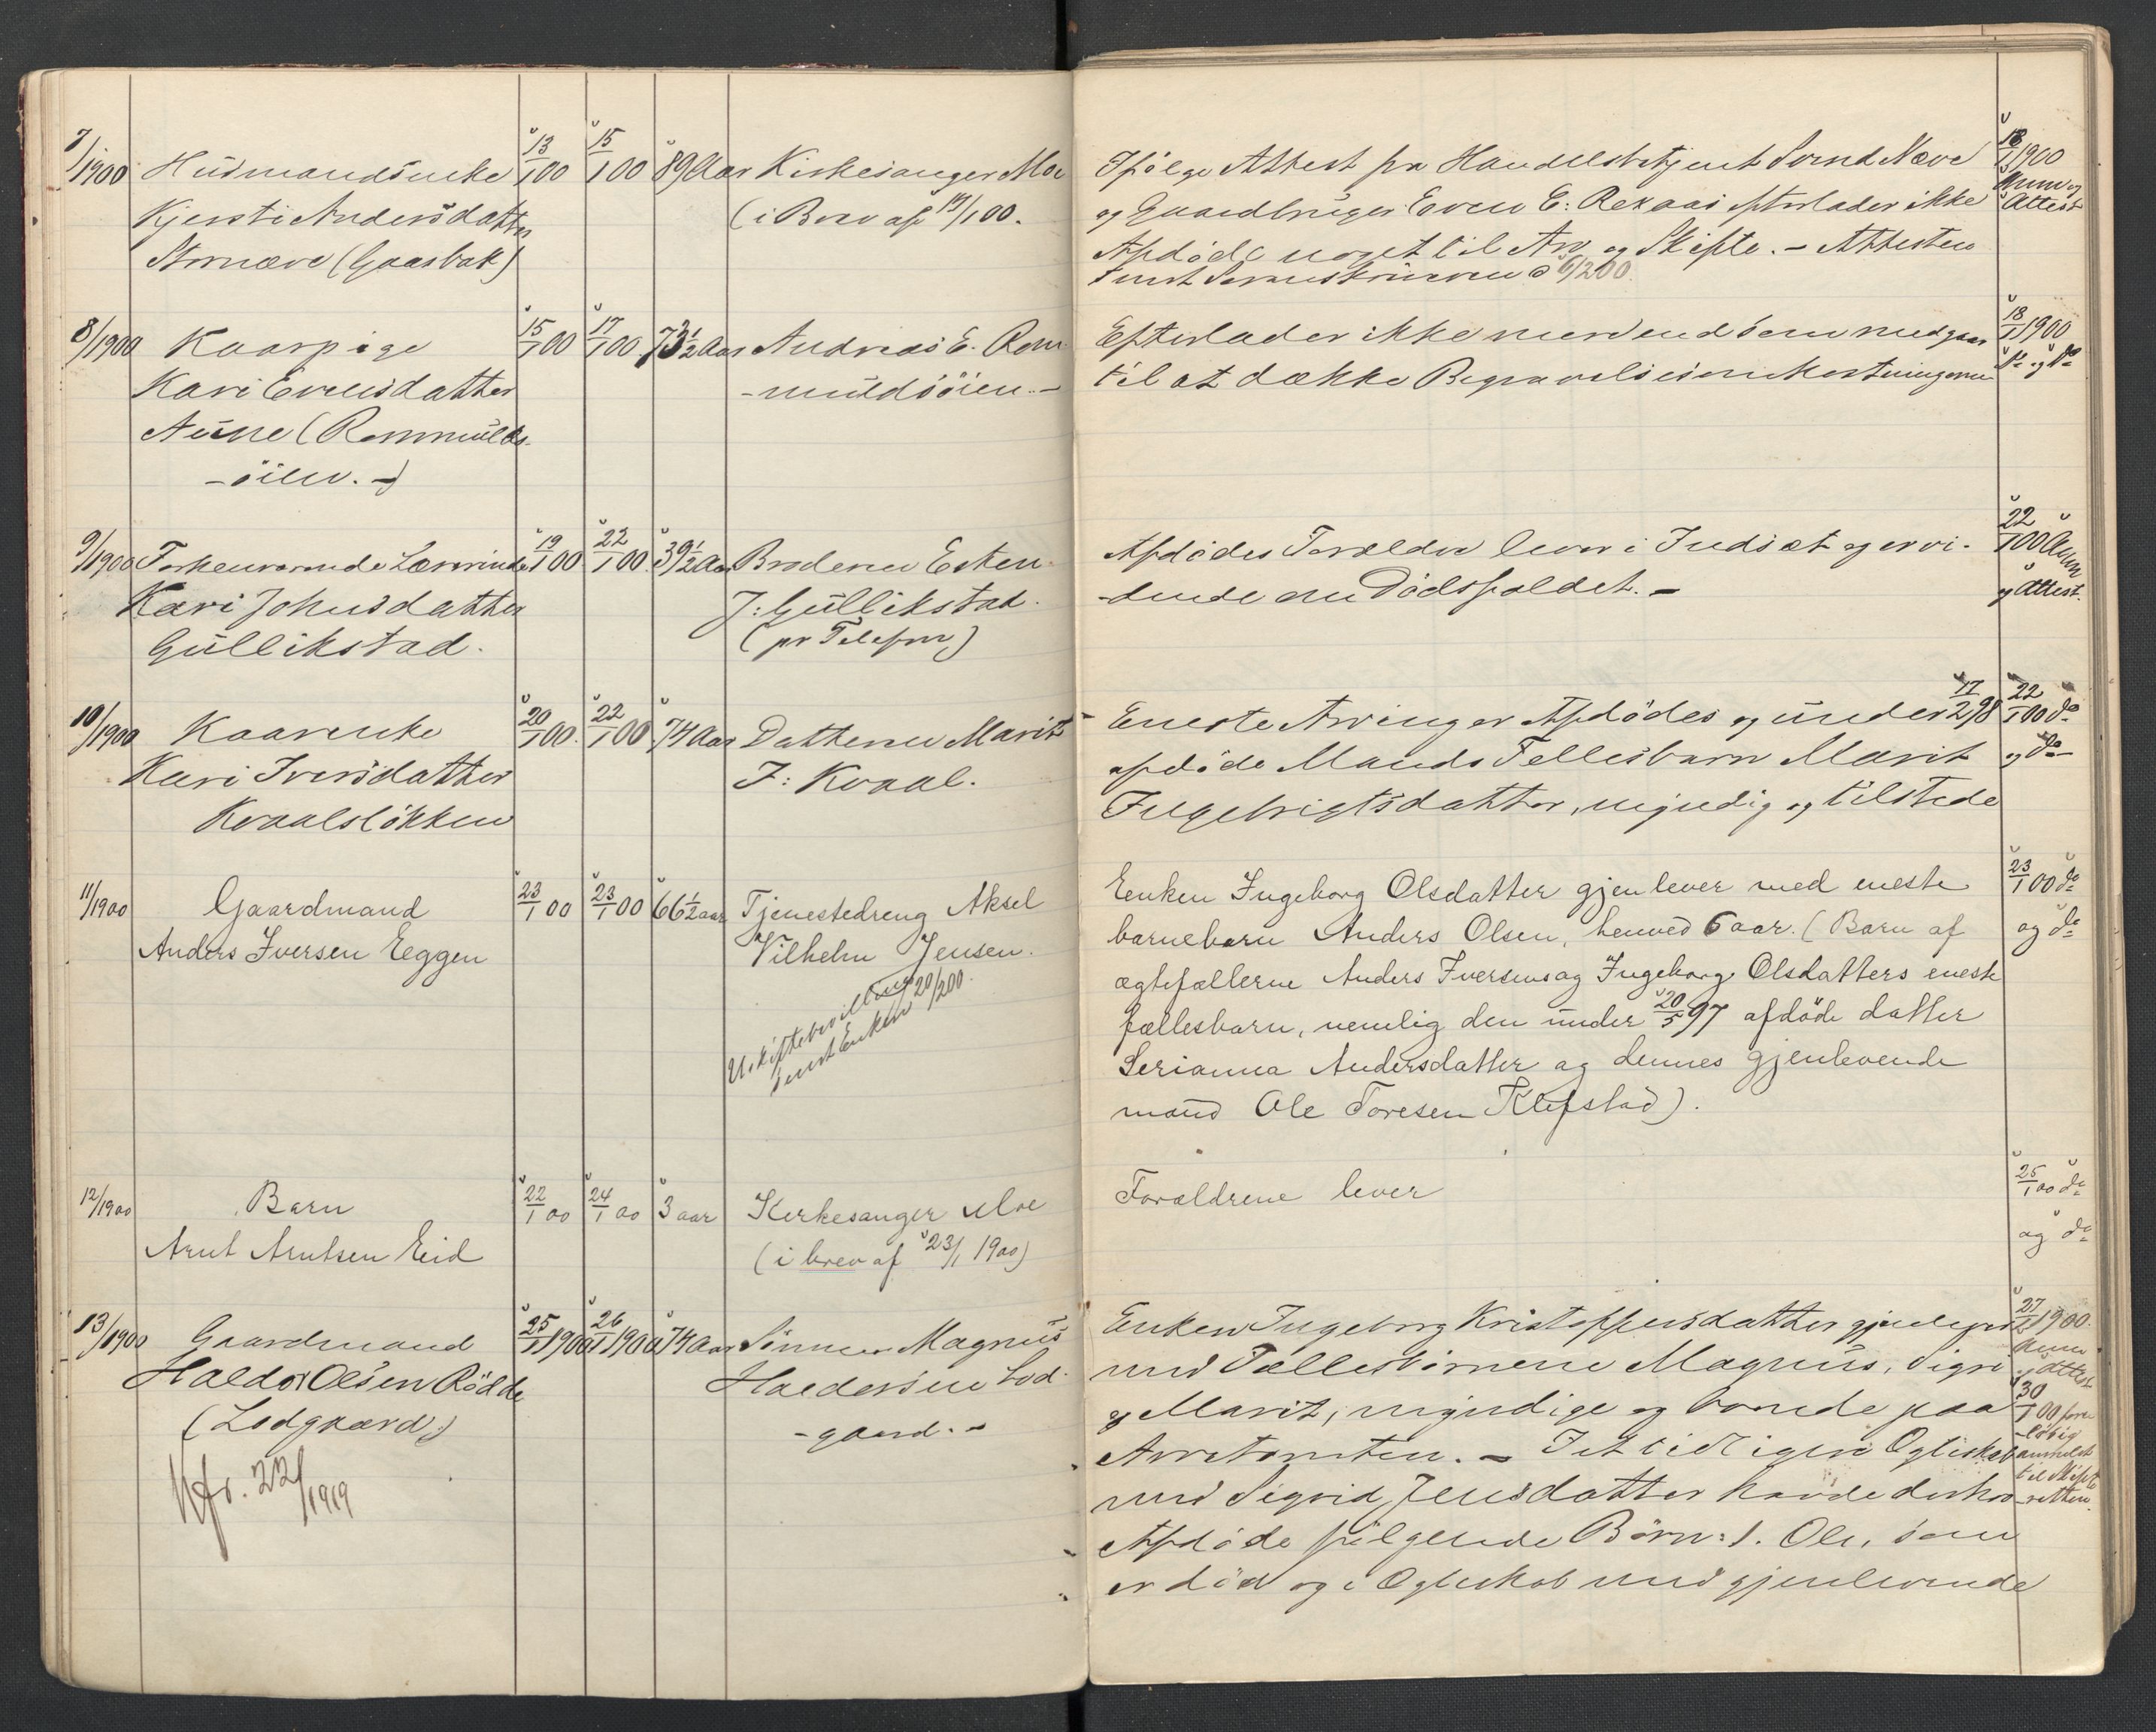 7/1900 Husmandsenke 13/1 00 15/1 00 89 Aar Kirkesanger Moe
Kjersti Andersdatter (i Brev af 14/1 00.
Stornæve (Gaasbak)
8/1900 Kaarpige 15/1 00 17/1 00 73½ Aar Andreas E. Rom-
Kari Evensdatter -muldsöien.-
Aune (Rommulds-
-öien.-)
9/1900 Forhenværende Lærerinde 19/1 00 22/1 00 39½ Aar Broderen Esten
Kari Johnsdatter J: Gullikstad.
Gullikstad. (pr Telefon)
10/1900 Kaarenke 20/1 00. 22/1 00 74 Aar Datteren Marit
Kari Iversdatter I: Kvaal.
Kvaalslökken
11/1900 Gaardmand 23/1 00 23/1 00 66½ aar Tjenestedreng Aksel
Anders Iversen Eggen Vilhelm Jensen.
Uskiftebevilling
sendt Enken 20/2 00.
12/1900 Barn 22/1 00 24/1 00 3 aar Kirkesanger Moe
Arnt Arntsen Eid (i brev af 23/1 1900)
13/1900 Gaardmand 25/1 1900 26/1 1900 74 Aar Sönnen Magnus
Haldor Olsen Rödde Haldorsen Lod-
(Lodgaard) -gaard.-
Kfr. 22/1919
Ifölge Attest fra Handelsbetjent Svend Næve 18/1 1900
og Gaardbruger Even E: Rexaas efterlader ikke Anm og
Afdöde noget til Arv og Skifte. - Attesten Attest
sendt Sorenskriveren 6/2 00.
Efterlader ikke mer end som medgaar 18/1 1900
til at dække Begravelsesomkostningerne do og do
Afdödes Forældre lever i Indset og er vi- 22/1 00 Anm
-dende om Dödsfaldet.- og Attest.
Eneste Arving er Afdödes og under 17/2 98 22/1 00 do
afdöde Mands Fellesbarn Marit og do
Ingebrigtsdatter, myndig og tilstede
Enken Ingeborg Olsdatter gjenlever med eneste 23/1 00 do
barnebarn Anders Olsen, henved 6 aar. (Barn af og do
ægtefællerne Anders Iversens og Ingeborg Olsdatters eneste
fællesbarn, nemlig den under 20/5 97 afdöde datter
Serianna Andersdatter og dennes gjenlevende
mand Ole Toresen Klefstad).
Forældrene lever 25/1 00 do
og do
Enken Ingeborg Kristoffersdatter gjenlever 27/1 1900.
med Fællesbörnene Magnus, Sigri Anm
og Marit, myndige og boende paa og Attest
Arvetomten. - I et tidligere Ægteskab 30/1 00 fore-
med Sigrid Jensdatter havde derhos -löbig
Afdöde fölgende Börn: 1. Ole, som anmeldt
er död og i Ægteskab med gjenlevende til Skifte-
-retten.